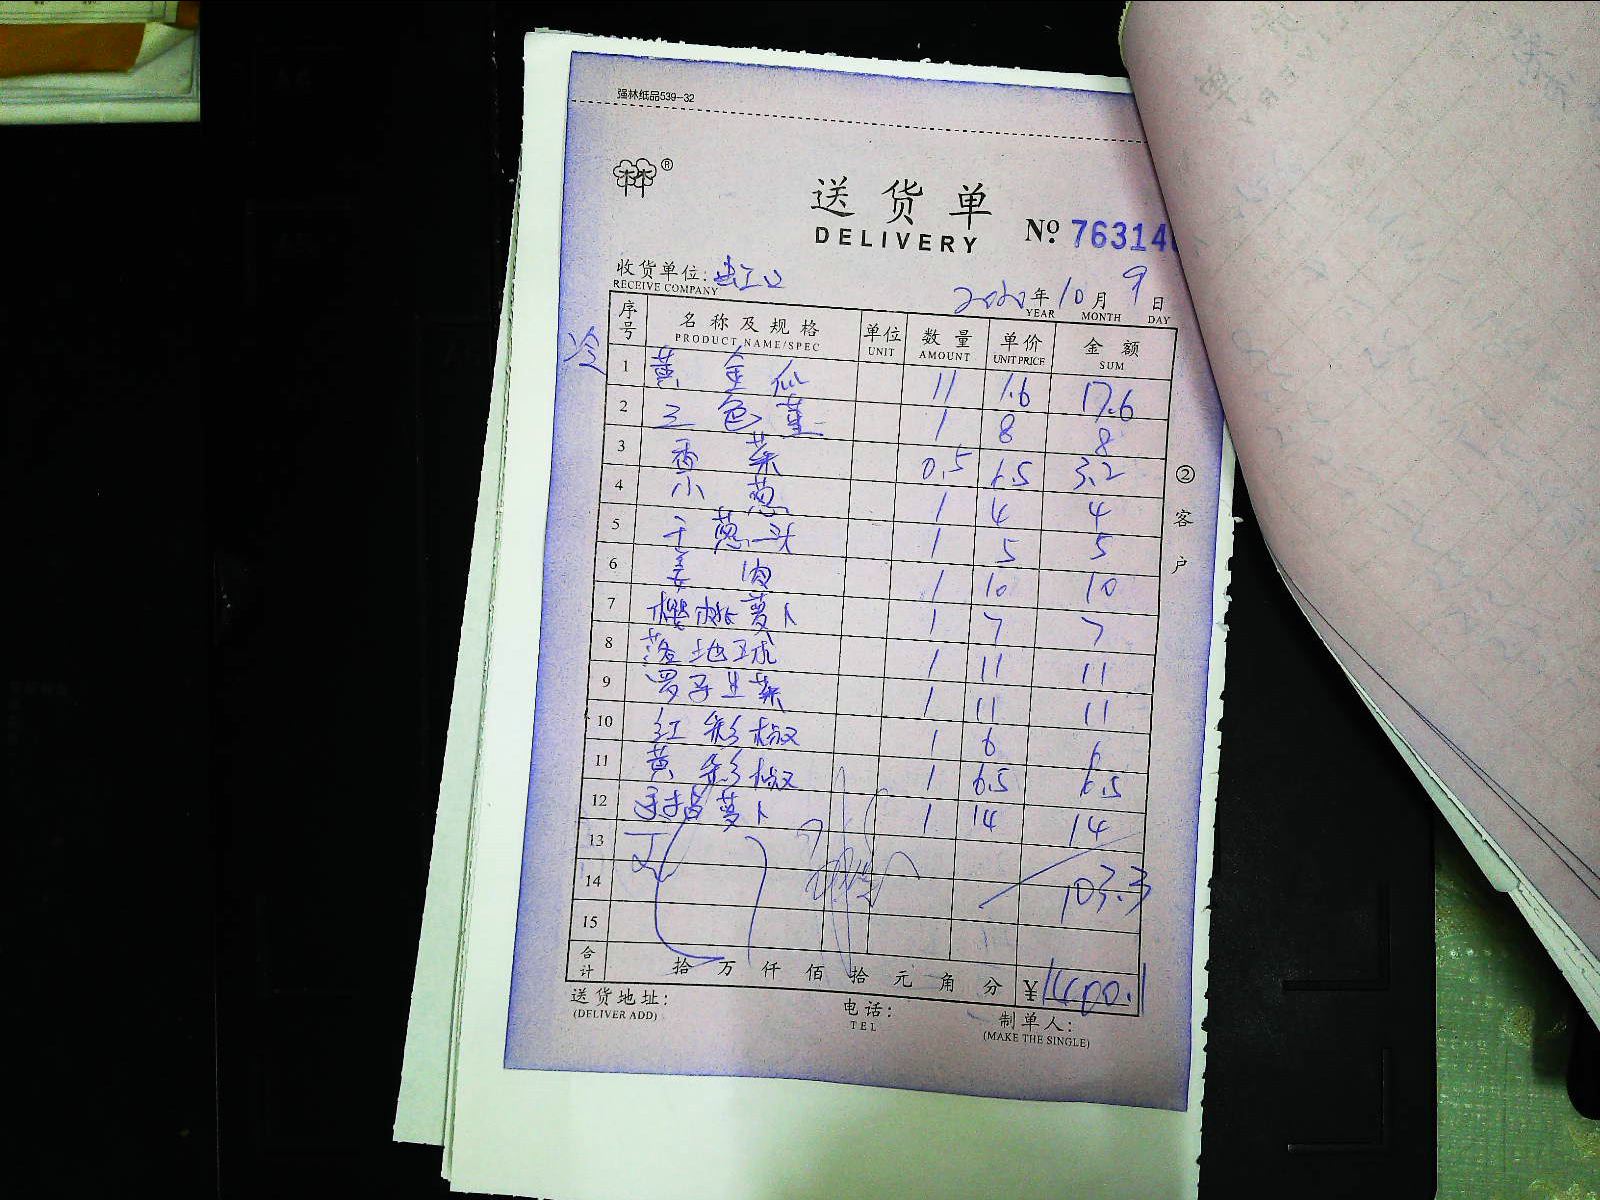 强林纸品539-32
送货单
DELIVERY
№ 76314
收货单位: 虹口
RECEIVE COMPANY
2020年10月9日
YEAR MONTH DAY
冷
序号 名称及规格 单位 数量 单价 金额
PRODUCT NAME/SPEC UNIT AMOUNT UNIT PRICE SUM
1 黄金瓜 11 1.6 17.6
2 三色堇 1 8 8
3 香菜 0.5 6.5 3.2
4 小葱 1 4 4
5 干葱头 1 5 5
6 姜肉 1 10 10
7 樱桃萝卜 1 7 7
8 1 11 11
9 1 11 11
10 红彩椒 1 6 6
11 黄彩椒 1 6.5 6.5
12 手指萝卜 1 14 14
13
14 103.3
15
合计 拾 万 仟 佰 拾 元 角 分 ¥1400.1
送货地址: 电话: 制单人:
(DELIVER ADD) TEL (MAKE THE SINGLE)
② 客户